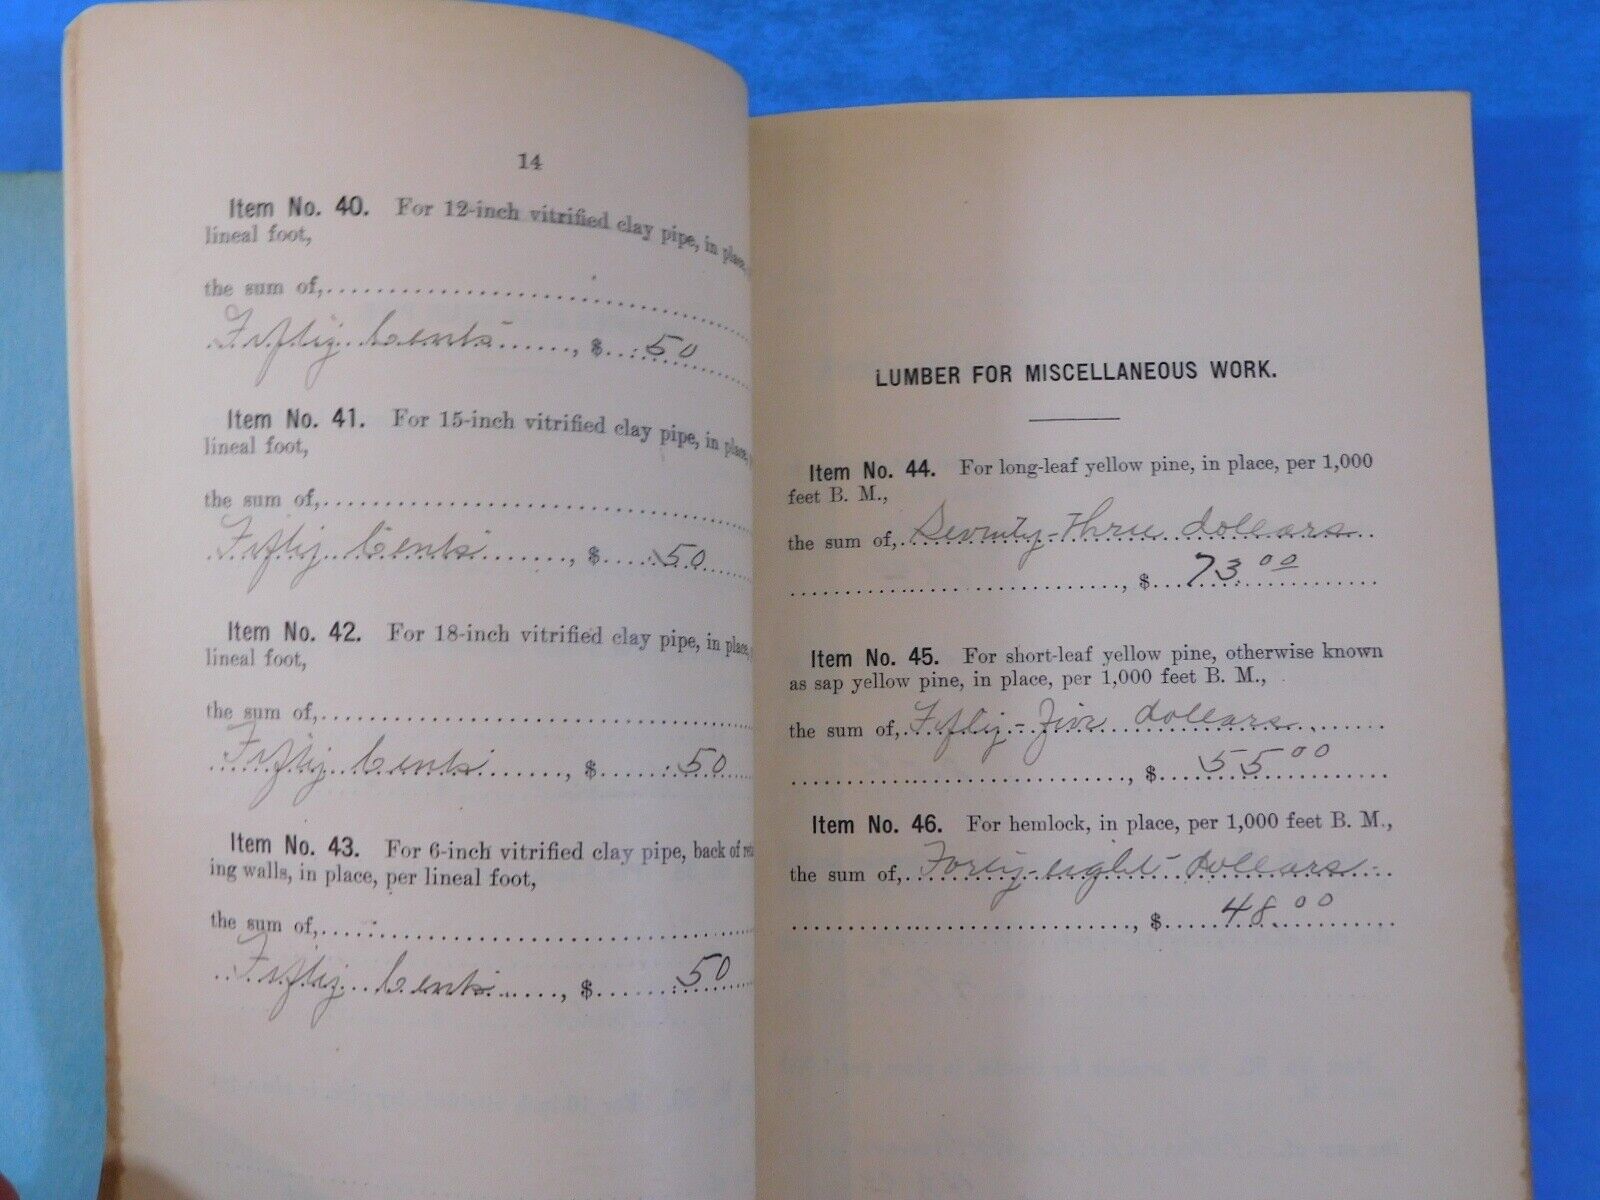 14
Item No. 40. For 12-inch vitrified clay pipe, in place,
lineal foot,
the sum of,
Fifty Cents, $ .50
Item No. 41. For 15-inch vitrified clay pipe, in place,
lineal foot,
the sum of,
Fifty Cents, $ .50
Item No. 42. For 18-inch vitrified clay pipe, in place,
lineal foot,
the sum of,
Fifty Cents, $ .50
Item No. 43. For 6-inch vitrified clay pipe, back of
ing walls, in place, per lineal foot,
the sum of,
Fifty Cents, $ .50
LUMBER FOR MISCELLANEOUS WORK.
Item No. 44. For long-leaf yellow pine, in place, per 1,000
feet B. M.,
the sum of, Seventy-three dollars
, $ 73.00
Item No. 45. For short-leaf yellow pine, otherwise known
as sap yellow pine, in place, per 1,000 feet B. M.,
the sum of, Fifty-Five dollars
, $ 55 00
Item No. 46. For hemlock, in place, per 1,000 feet B. M.,
the sum of, Forty-eight dollars
, $ 48.00